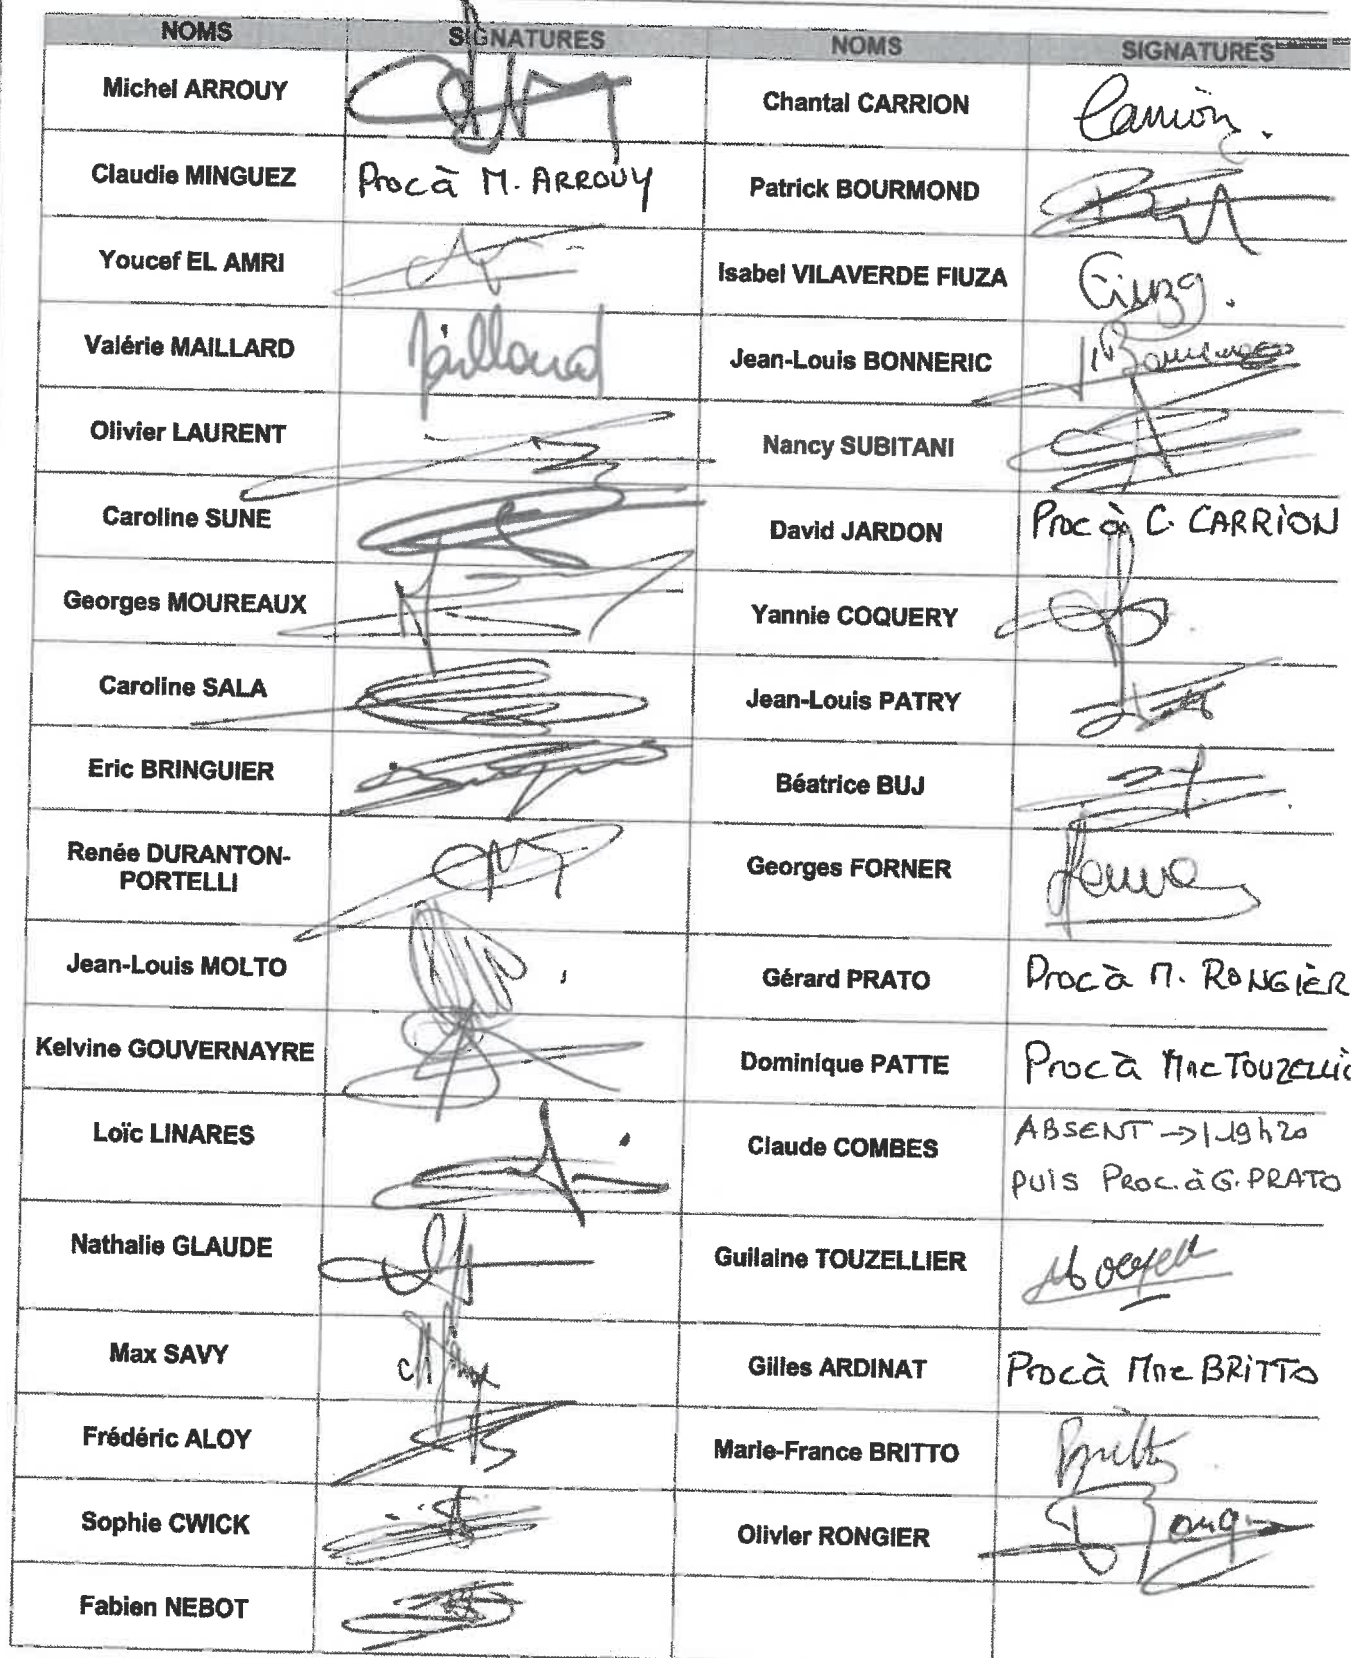 NOMS SIGNATURES NOMS SIGNATURES
Michel ARROUY Chantal CARRION Carrion.
Claudie MINGUEZ Proc à M. ARROUY Patrick BOURMOND
Youcef EL AMRI Isabel VILAVERDE FIUZA Fiuza.
Valérie MAILLARD Maillard Jean-Louis BONNERIC
Olivier LAURENT Nancy SUBITANI
Caroline SUNE David JARDON Proc à C. CARRION
Georges MOUREAUX Yannie COQUERY
Caroline SALA Jean-Louis PATRY
Eric BRINGUIER Béatrice BUJ
Renée DURANTON-
PORTELLI Georges FORNER
Jean-Louis MOLTO Gérard PRATO Proc à M. RONGIER
Kelvine GOUVERNAYRE Dominique PATTE Proc à Mme TOUZELLIE
Loïc LINARES Claude COMBES ABSENT → 19h20
PUIS PROC. à G. PRATO
Nathalie GLAUDE Guilaine TOUZELLIER
Max SAVY Gilles ARDINAT Proc à Mme BRITTO
Frédéric ALOY Marie-France BRITTO Britto
Sophie CWICK Olivier RONGIER
Fabien NEBOT